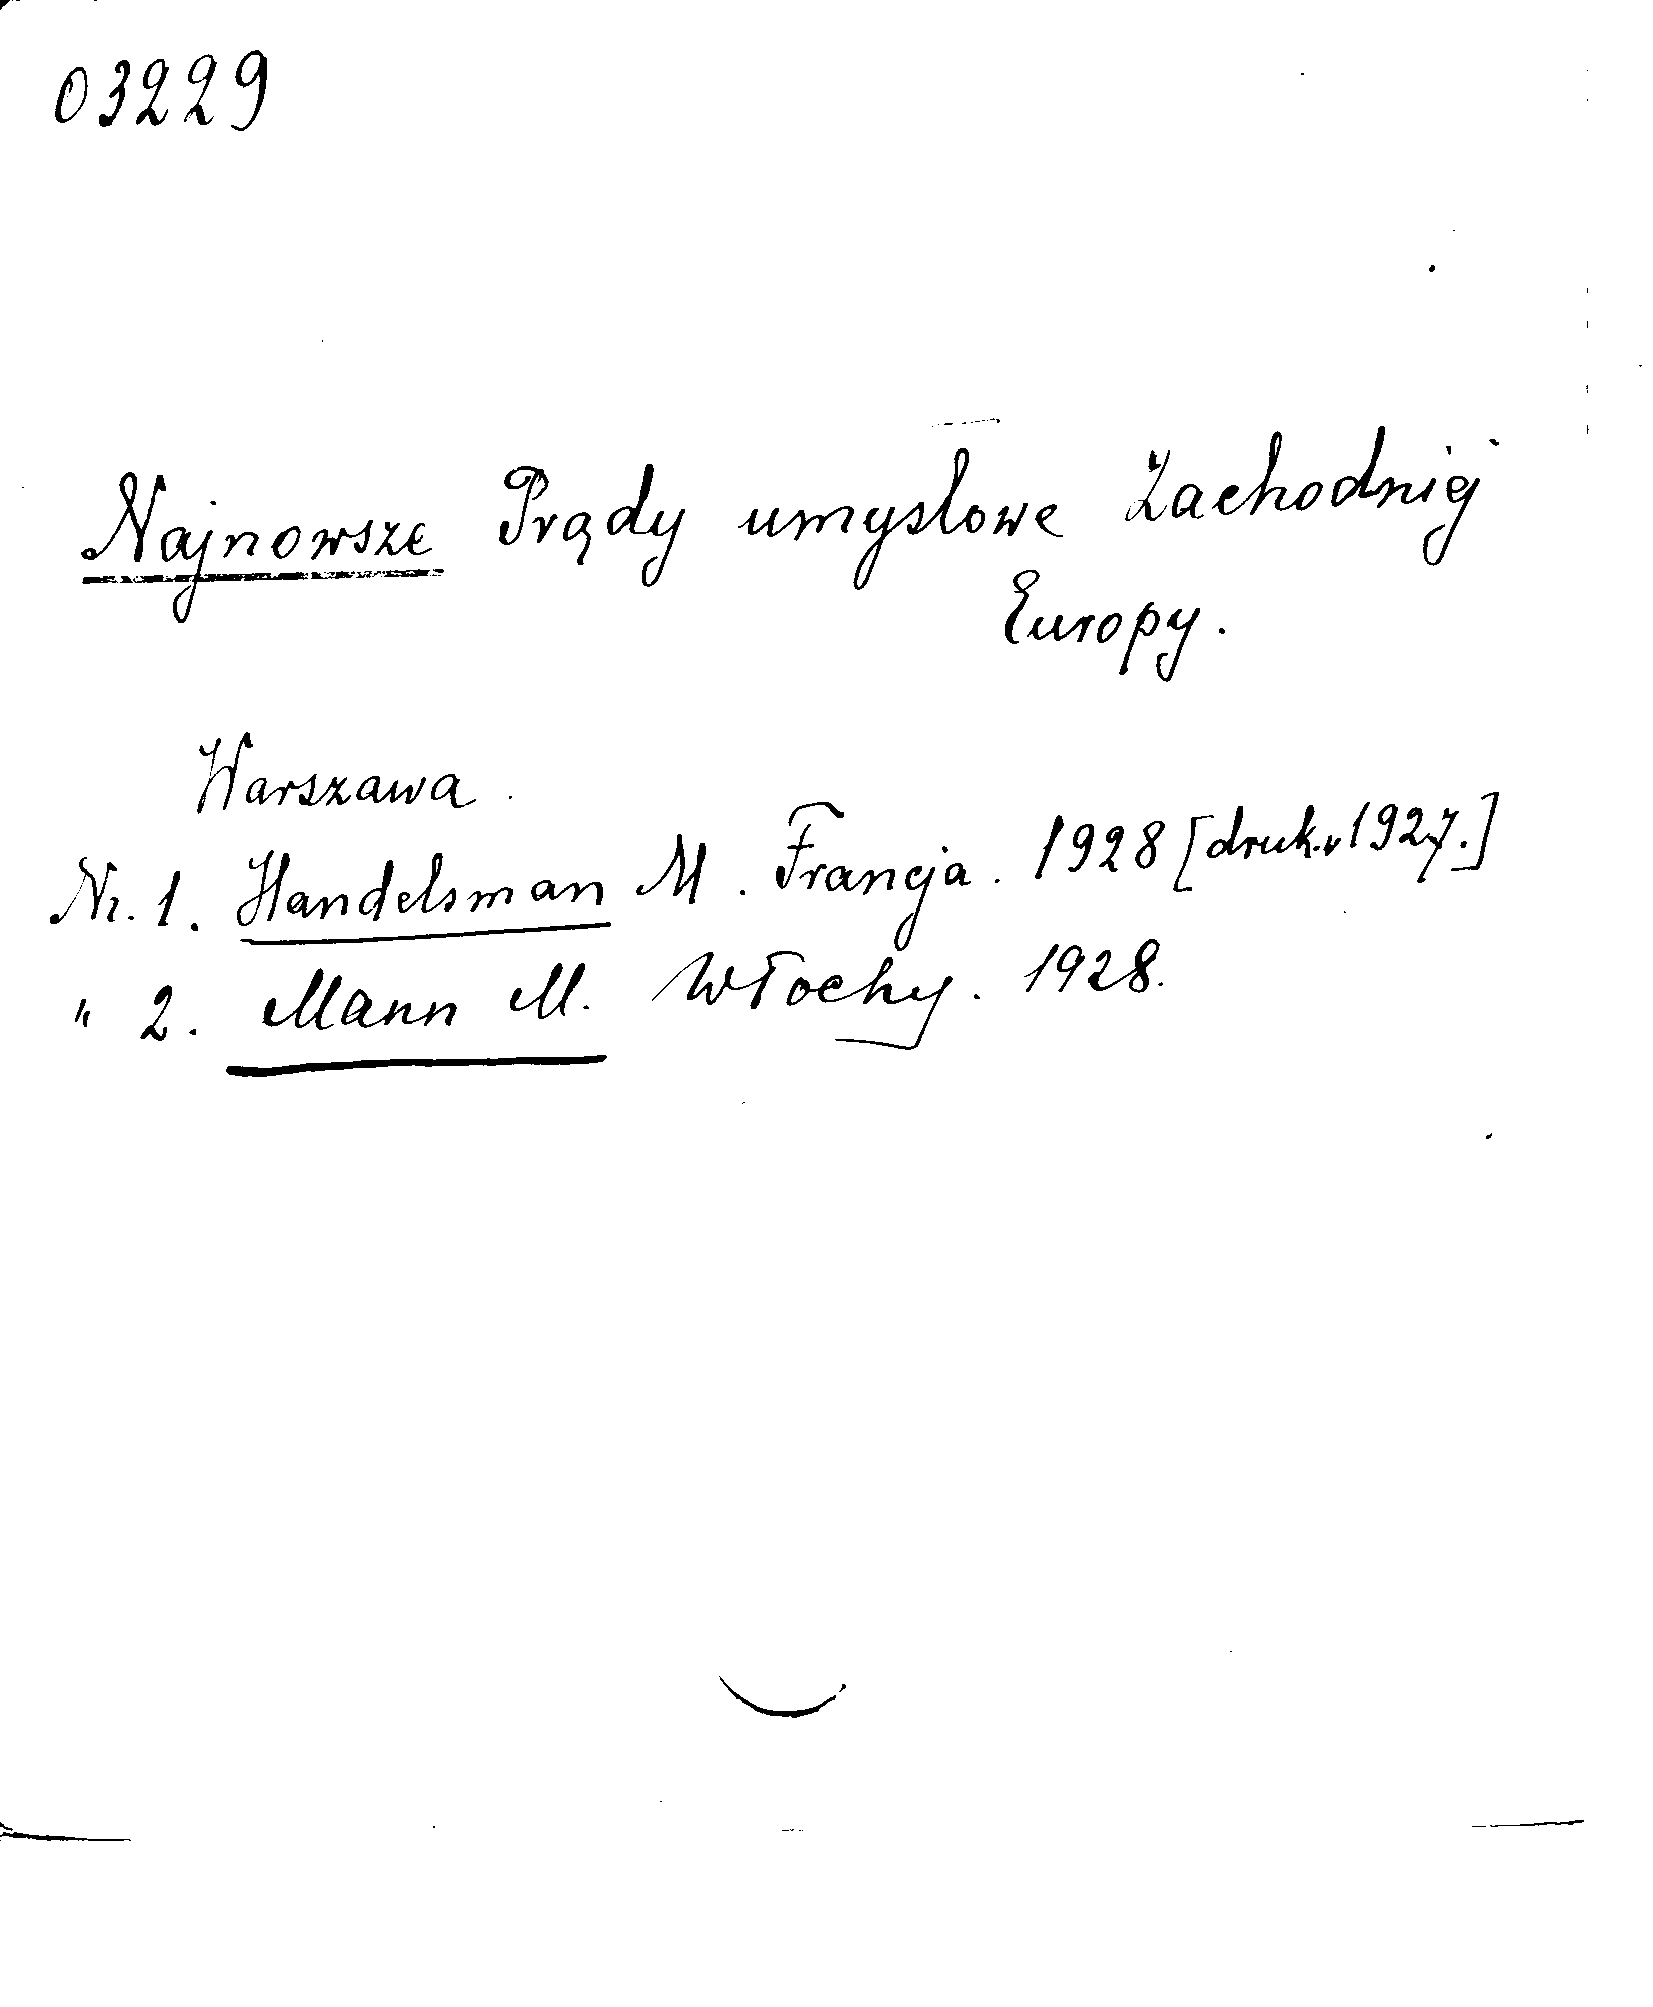 03229
Najnowsze Prądy umysłowe Zachodniej
Europy.
Warszawa.
Nr. 1. Handelsman M. Francja. 1928 [druk. 1927.]
" 2. Mann M. Włochy. 1928.